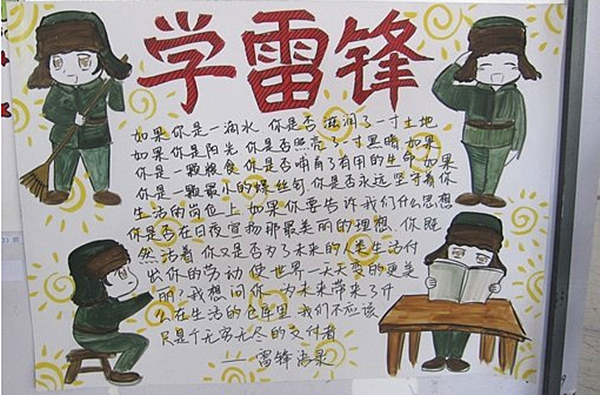 学雷锋
如果你是一滴水 你是否滋润了一寸土地
如果你是阳光 你是否照亮了一寸黑暗 如果
你是一颗粮食 你是否哺育了有用的生命 如果
你是一颗最小的螺丝钉 你是否永远坚守着你
生活的岗位上 如果你要告诉我们什么思想
你是否在日夜宣扬那最美丽的理想 你既
然活着 你又是否为了未来的人类生活付
出你的劳动 使世界一天天变的更美
丽？我想问你 为未来带来了什
么 在生活的仓库里 我们不应该
只是个无穷无尽的支付者
——雷锋语录